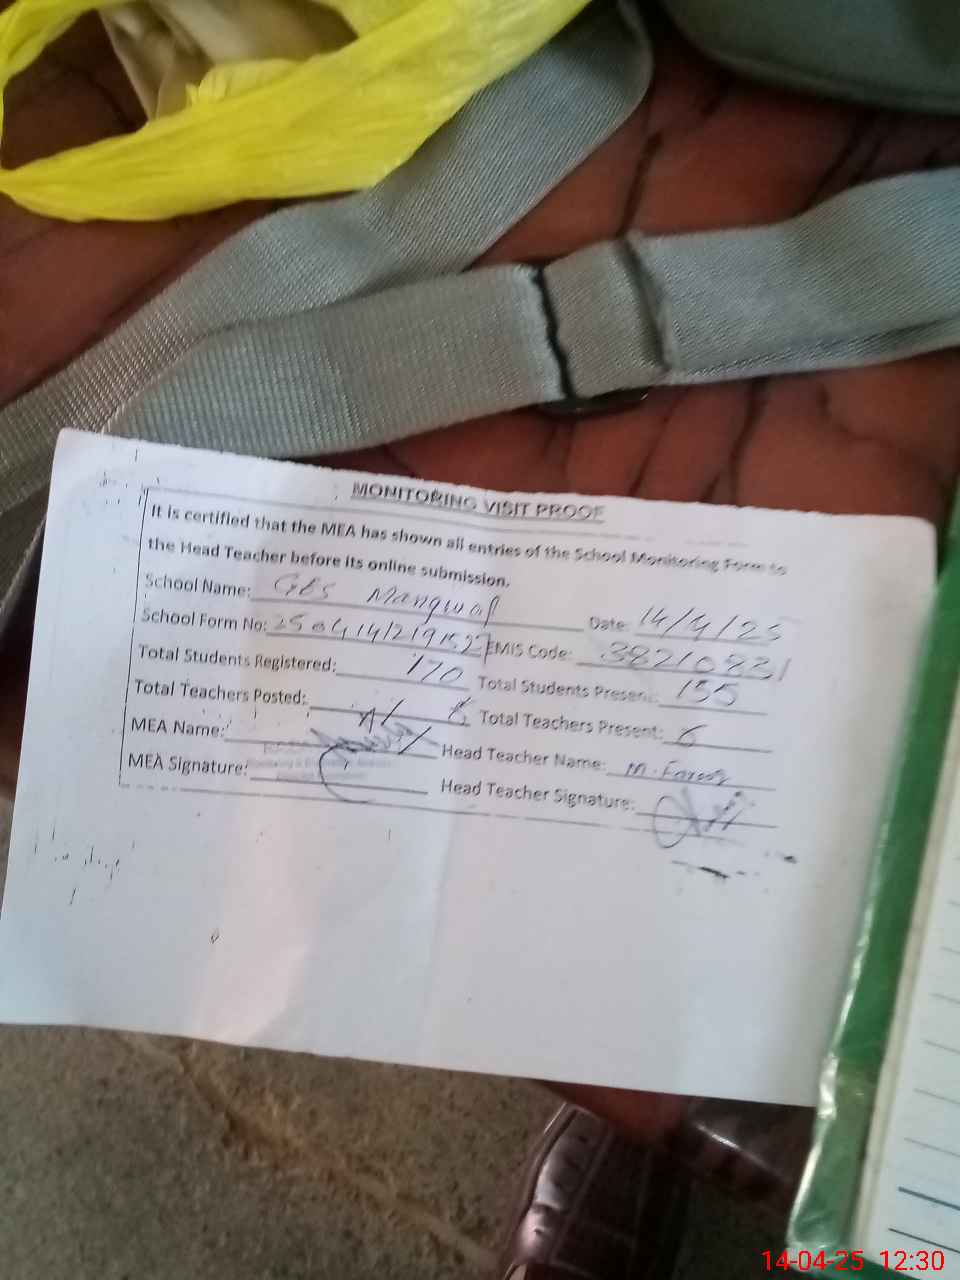 MONITORING VISIT PROOF
It is certified that the MEA has shown all entries of the School Monitoring Form to
the Head Teacher before its online submission.
School Name: GES Mangwal Date: 14/4/25
School Form No: EMIS Code: 38210831
Total Students Registered: 170 Total Students Present: 155
Total Teachers Posted: 8 Total Teachers Present: 6
MEA Name: Head Teacher Name: M. Farooq
MEA Signature: Head Teacher Signature:
14-04-25 12:30